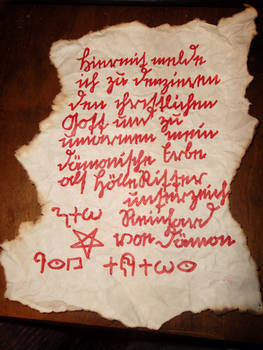 Hiermit melde
ich zu denzieren
den christlichen
Gott und zu
umarmen mein
dämonische Erbe
als HölleRitter
unterzeich
Reinhard
von Dämon